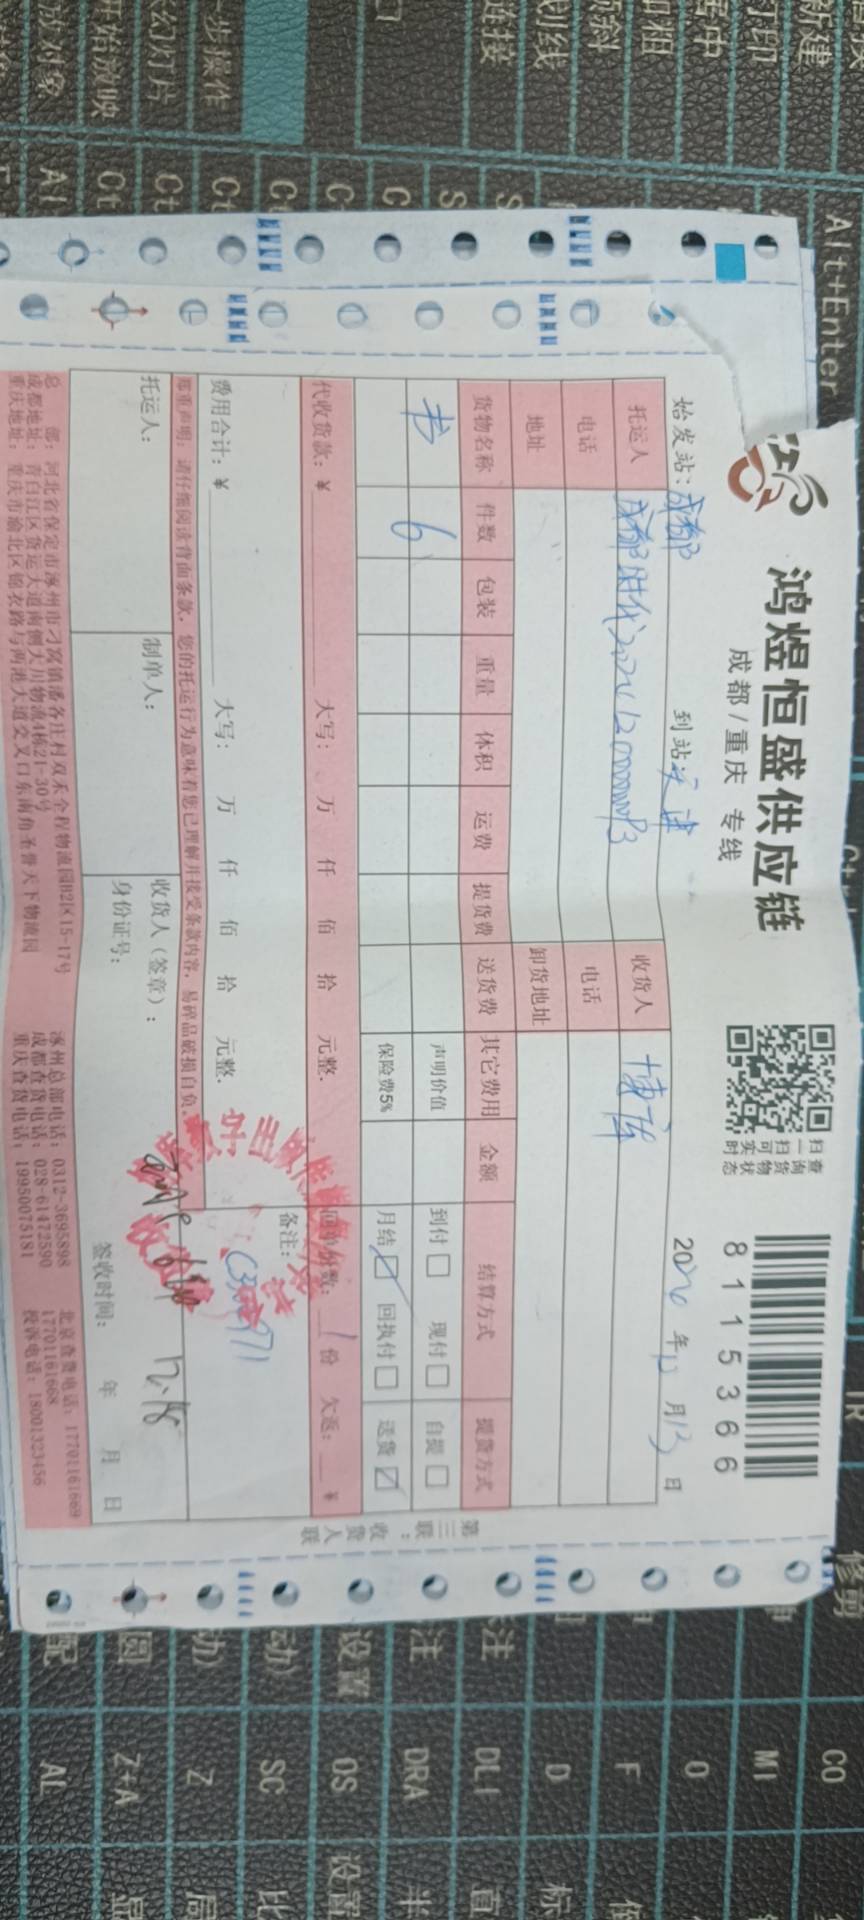 鸿煜恒盛供应链
成都/重庆 专线
扫一扫 查询货物实时状态
8115366
始发站：成都
到站：天津
20 年12月13日
托运人
收货人 博库
电话
电话
地址
卸货地址
货物名称 件数 包装 重量 体积 运费 提货费 送货费 其它费用 金额 结算方式 提货方式
书 6
声明价值
到付□ 现付□ 自提□
保险费5%
月结☑ 回执付□ 送货☑
代收货款：¥ 大写： 万 仟 佰 拾 元整.
回单份数：1份 欠返： ¥
费用合计：¥ 大写： 万 仟 佰 拾 元整.
备注：
郑重声明：请仔细阅读背面条款，您的托运行为意味着您已理解并接受条款内容，易碎品破损自负。
托运人：
制单人：
收货人（签章）：
12.18
身份证号：
签收时间： 年 月 日
总 部：河北省保定市涿州市刁窝镇潘各庄村双禾全程物流园B2区15-17号
涿州总部电话：0312-3695898
北京查货电话：17701161669
成都地址：青白江区货运大道南侧大川物流4栋21-30号
成都查货电话：028-61472590
17701161668
重庆地址：重庆市渝北区锦衣路与两港大道交叉口东南角圣誉天下物流园
重庆查货电话：19950075181
投诉电话：18001323456
第三联：收货人联
Alt+Enter
新建
打印
居中
加粗
倾斜
划线
连接
一步操作
幻灯片
开始放映
放对象
修剪
CO
MI
O
F
D
DLI
DRA
OS
SC
Z
Z+A
AL
设置